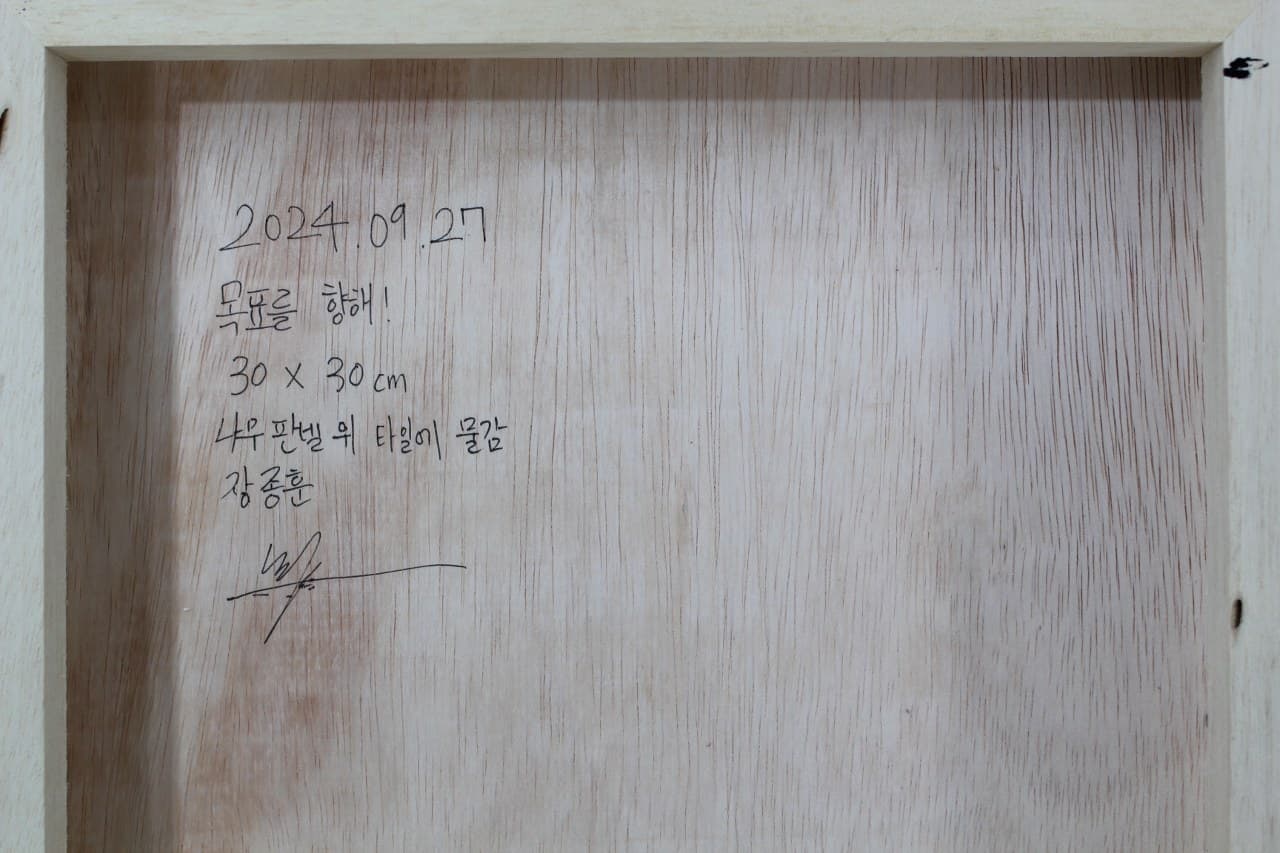 2024.09.27
목표를 향해!
30 x 30 cm
나무 판넬 위 타일에 물감
장종훈